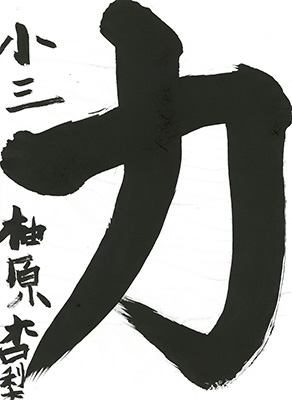 力
小三 柚原 杏梨